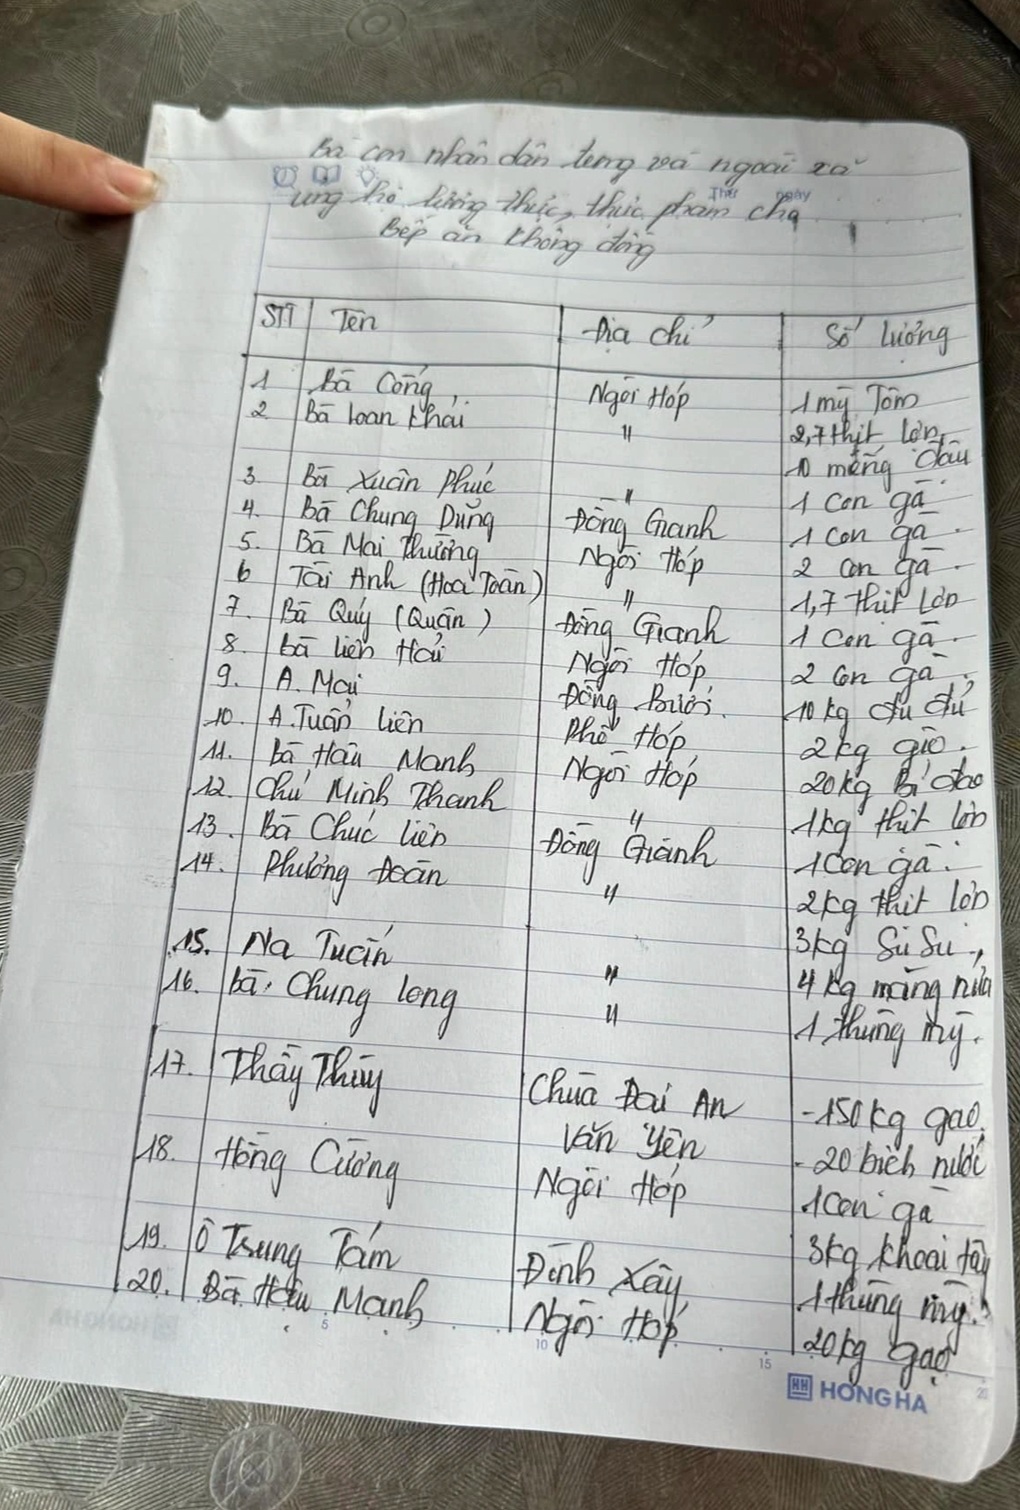 Bà con nhân dân trong và ngoài xã
Thứ ngày
ủng hộ lương thực, thực phẩm cho
Bếp ăn không đồng
STT Tên Địa chỉ Số lượng
1 Bà Công Ngòi Hóp 1 mỳ Tôm
2 Bà Loan Khải " 2,7 thịt lợn,
10 miếng đậu
3. Bà Xuân Phúc " 1 con gà
4. Bà Chung Dũng Đồng Gianh 1 con gà.
5. Bà Mai Thường Ngòi Hóp 2 con gà.
6 Tài Anh (Hoa Toàn) " 1,7 thịt lợn
7. Bà Quý (Quận) Đồng Gianh 1 con gà.
8. Bà Liên Hải Ngòi Hóp 2 con gà.
9. A. Mai Đồng Bưởi. 10 kg đu đủ
10. A. Tuấn Liên Phố Hóp 2kg giò.
11. Bà Hậu Mạnh Ngòi Hóp 20kg Bí đao
12. Chú Minh Thanh " 1kg thịt lợn
13. Bà Chúc Liên Đồng Gianh 1 con gà.
14. Phương Đoàn " 2kg thịt lợn
3kg Su Su,
15. Na Tuấn " 4 kg măng nứa
16. Bà Chung Long " 1 thùng mỳ.
17. Thầy Thủy Chùa Đại An - 150kg gạo.
Văn Yên - 20 bịch nước
18. Hồng Cường Ngòi Hóp 1 con gà
3kg khoai tây
19. Ô Trung Tám Đình Xây 1 thùng mỳ.
20. Bà Hậu Mạnh Ngòi Hóp 20kg gạo
5 10 15 20
HH HONG HA